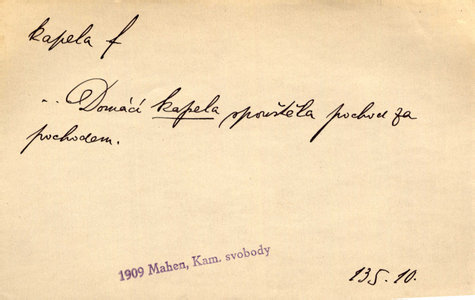 kapela f
... Domácí kapela spouštěla pochod za
pochodem.
1909 Mahen, Kam. svobody
135.10.